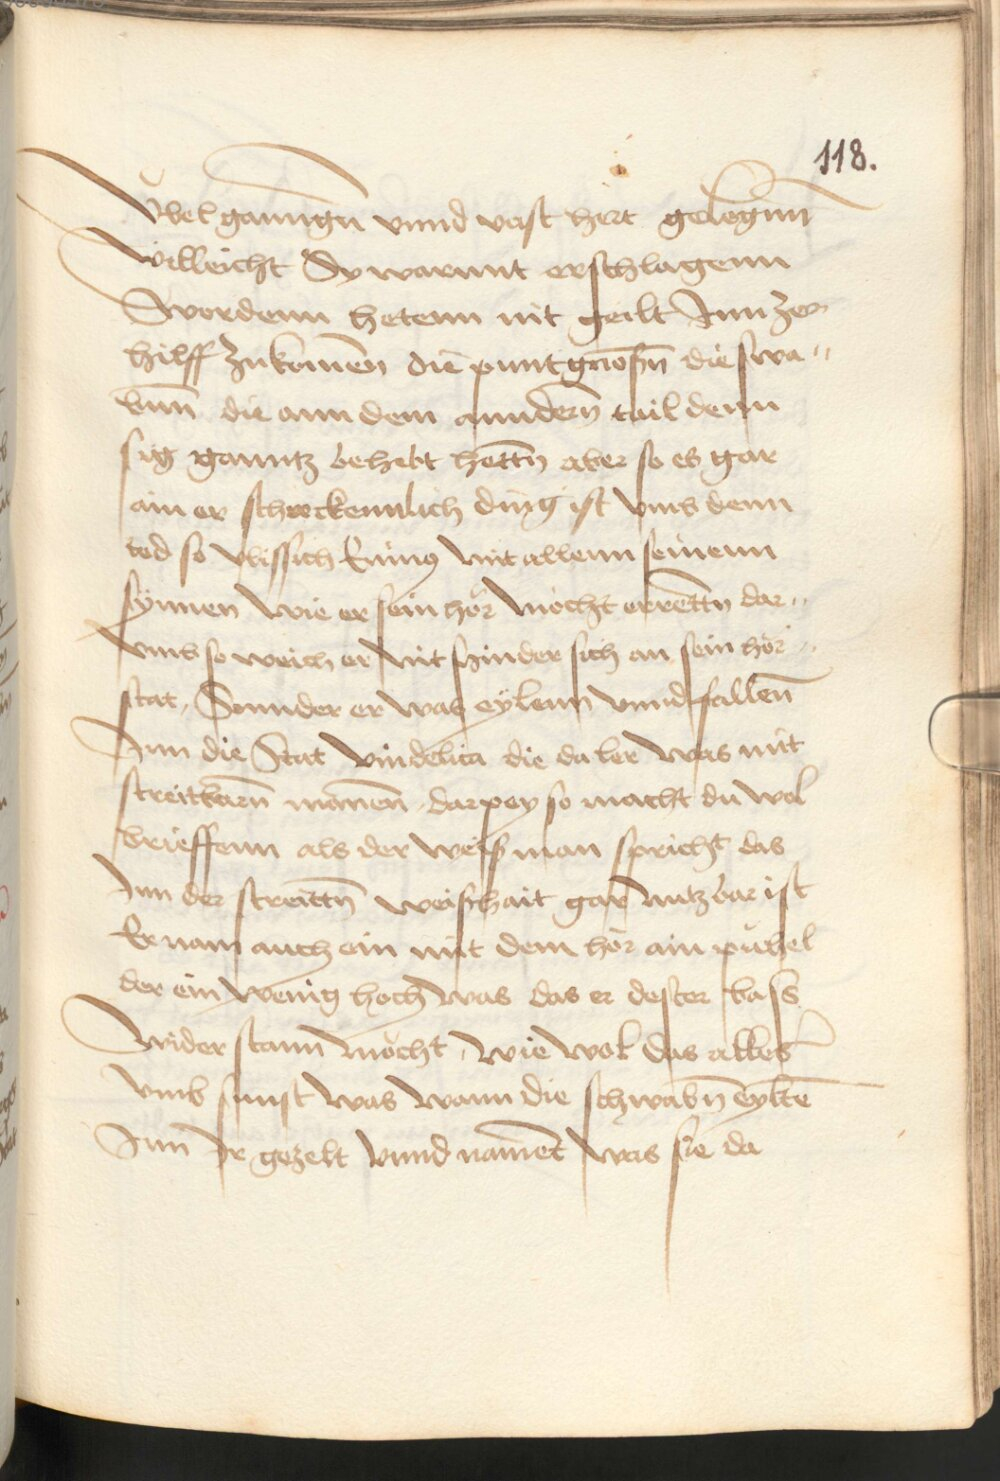 118.
Vbel ganngen vnnd vast hert gelegnn
villeicht Sy warnnt erschlagenn
Wordenn hetenn nit geilt Jnn ze
hilff zukomen die puntgnosn die swa„
bnn die ann dem anndern tail denn
sig ganntz behebt hettn aber so es gar
ain er schrockennlich ding ist vmb denn
tod so vlissich mit allenn seinenn
synnen wie er sein hör möcht errettn dar„
vmb so weich er nit hinder sich an sein hör„
stat, Sonnder er was eylenn vnnd fallen
Jnn die Stat vindelica die da ler was mit
streitbarn mannen, darpey so macht du wol
brieffenn als der weis man spricht das
Jnn der streittn weishait gar nutzbar ist
Er nam auch ein mit dem hör ain puhel
der ein wenig hoch was das er dester bass
wider stann möcht, wie wol das alles
vmb sunst was wann die schwabn eylte
Jnn Jr gezelt vnnd nament was sie da